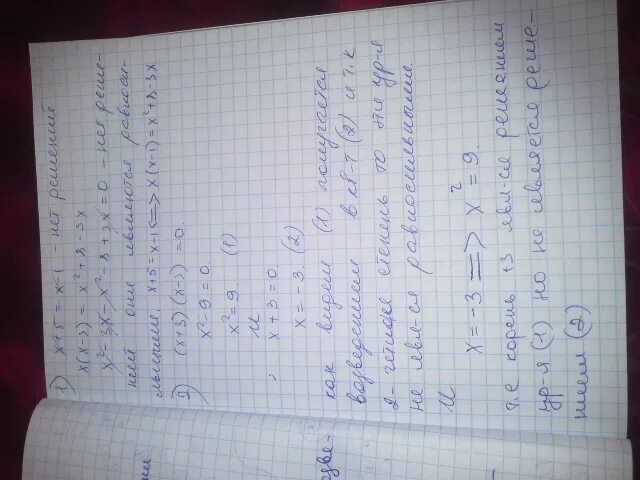 1) x+5 = x-1 - нет решений
x(x-3) = x²+8-3x
x²-3x-x²-8+3x=0 - нет реше-
ний они являются равноси-
льными. x+5=x-1 <=> x(x-1)=x²+8-3x
2) (x+3)(x-3)=0.
x²-9=0.
x²=9. (1)
и
x+3=0.
x=-3. (2)
как видем (1) получается
возведением в кв-т (2) и т.к
2- четное степень то эти ур-я
не явл-ся равносильными.
и x=-3 => x²=9.
т.е корень +3 явл-ся решением
ур-я (1) но не является реше-
нием (2)
ний
озве-